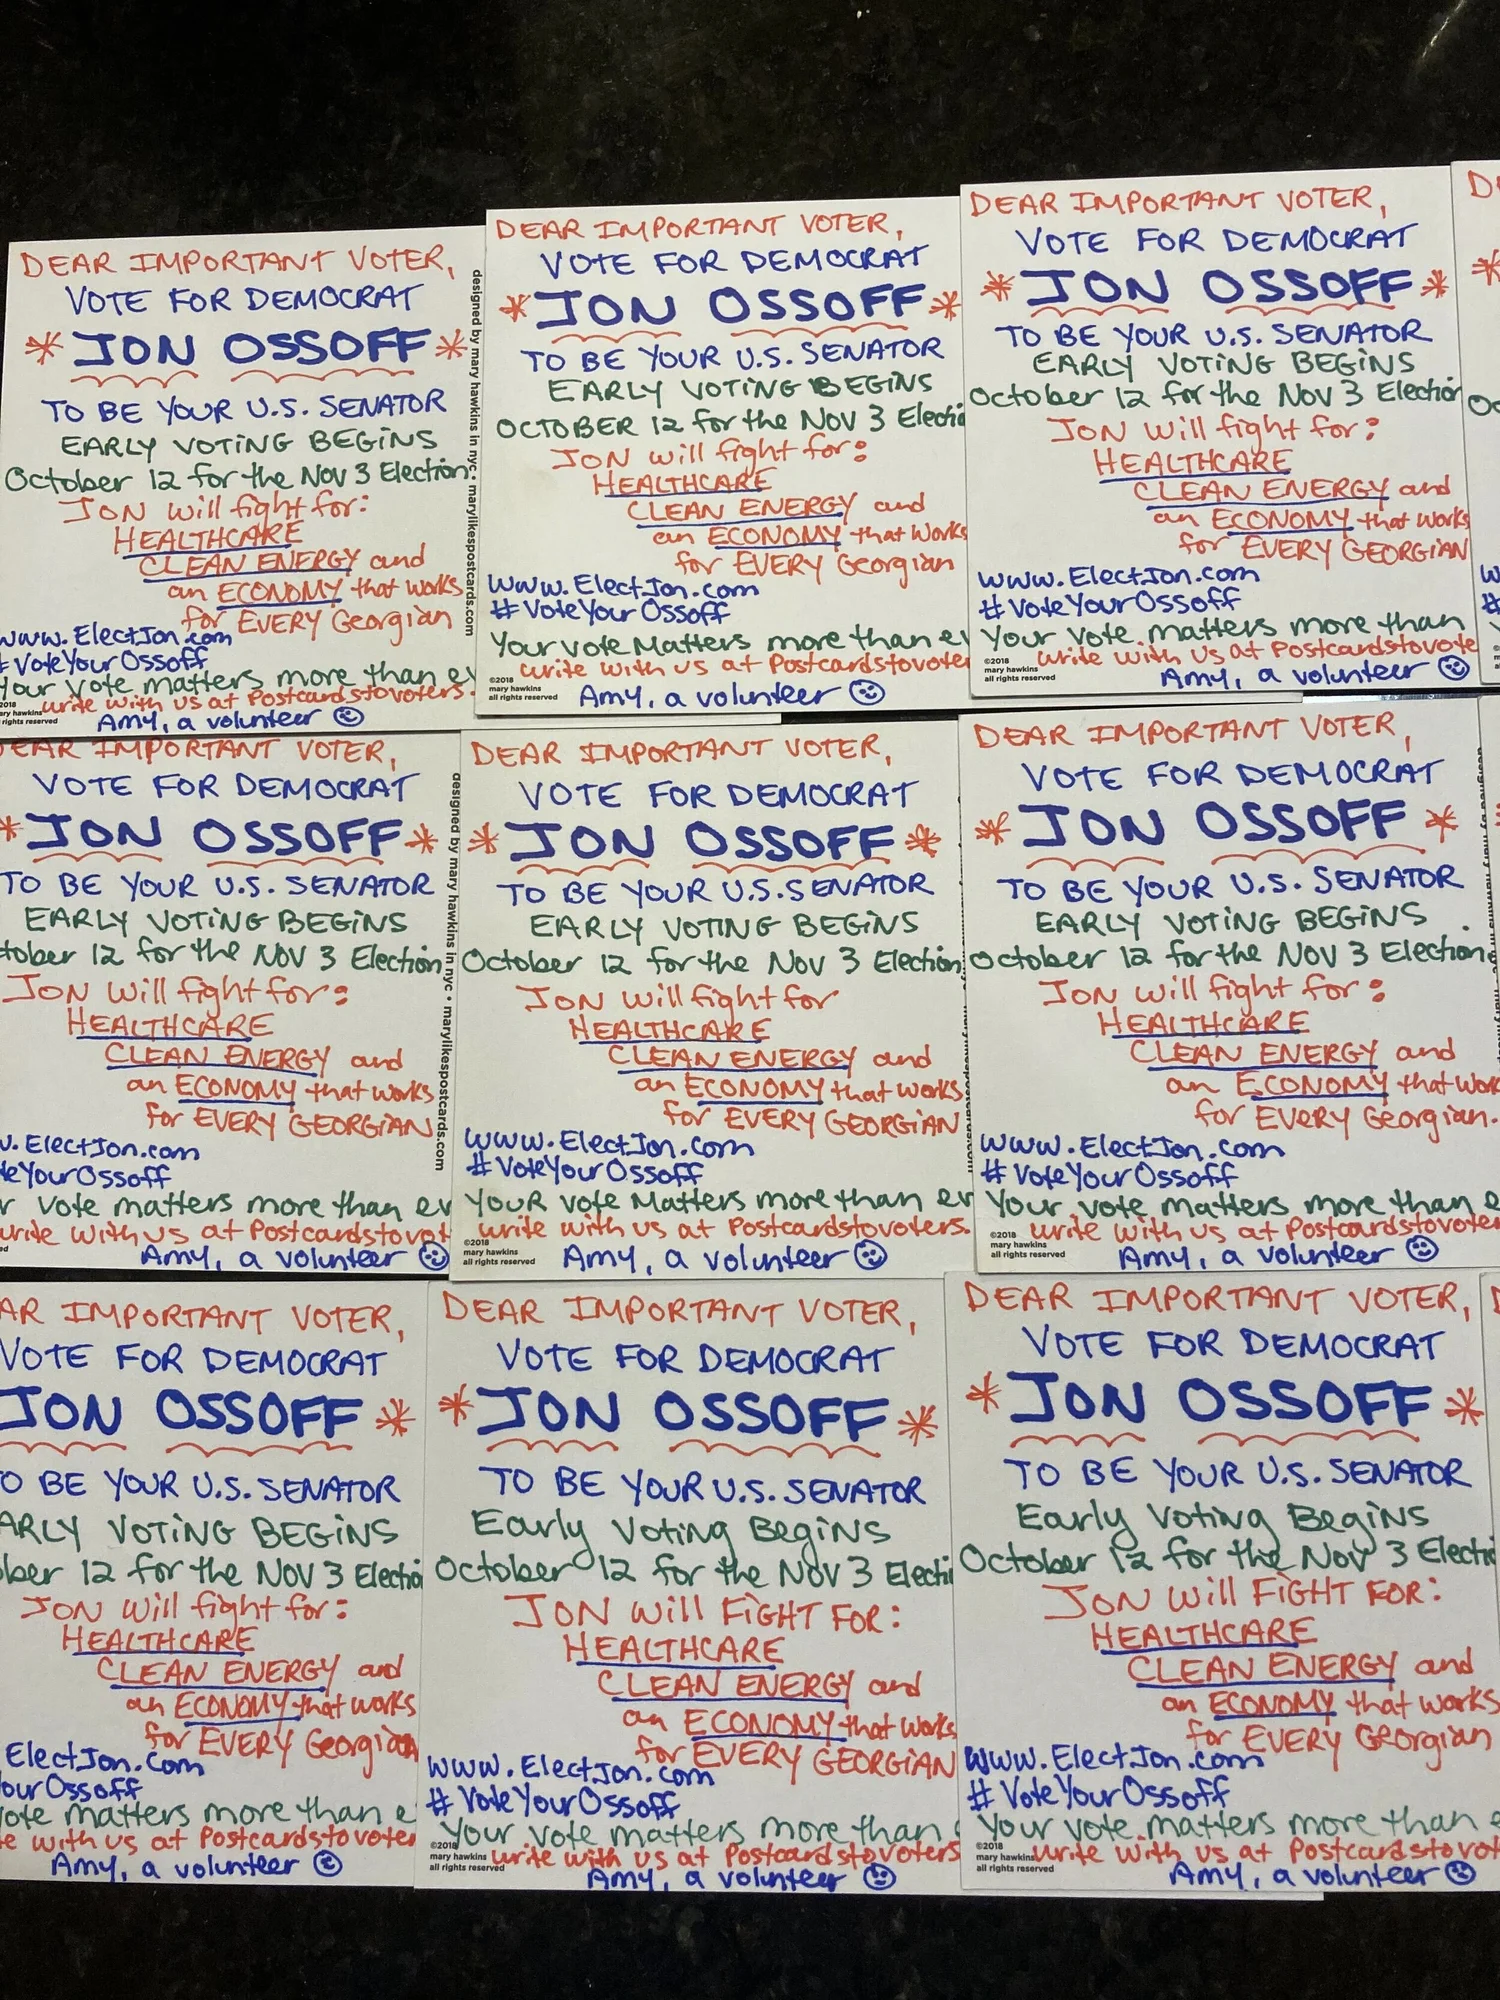 DEAR IMPORTANT VOTER,
VOTE FOR DEMOCRAT
* JON OSSOFF *
TO BE YOUR U.S. SENATOR
EARLY VOTING BEGINS
October 12 for the Nov 3 Election.
JON will fight for:
HEALTHCARE
CLEAN ENERGY and
an ECONOMY that works
for EVERY Georgian
www.ElectJon.com
#VoteYourOssoff
Your vote matters more than
write with us at Postcardstovoters.
Amy, a volunteer
2018
mary hawkins
rights reserved
designed by mary hawkins in nyc • marylikespostcards.com
DEAR IMPORTANT VOTER,
VOTE FOR DEMOCRAT
* JON OSSOFF *
TO BE YOUR U.S. SENATOR
EARLY VOTING BEGINS
OCTOBER 12 for the Nov 3
JON will fight for:
HEALTHCARE
CLEAN ENERGY and
an ECONOMY that works
for EVERY Georgian
www.ElectJon.com
#VoteYourOssoff
Your vote Matters more than
write with us at Postcardstovoter
Amy, a volunteer
©2018
mary hawkins
all rights reserved
DEAR IMPORTANT VOTER,
VOTE FOR DEMOCRAT
* JON OSSOFF *
TO BE YOUR U.S. SENATOR
EARLY VOTING BEGINS
October 12 for the Nov 3 Election
JON will fight for:
HEALTHCARE
CLEAN ENERGY and
an ECONOMY that works
for EVERY GEORGIAN
www.ElectJon.com
#VoteYourOssoff
Your vote matters more than
write with us at Postcardstovote
Amy, a volunteer
©2018
mary hawkins
all rights reserved
DEAR IMPORTANT VOTER,
VOTE FOR DEMOCRAT
* JON OSSOFF *
TO BE YOUR U.S. SENATOR
EARLY VOTING BEGINS
tober 12 for the Nov 3 Election
JON will fight for:
HEALTHCARE
CLEAN ENERGY and
an ECONOMY that works
for EVERY GEORGIAN
w.ElectJon.com
teYourOssoff
r vote matters more than ev
write with us at Postcardstovot
Amy, a volunteer
designed by mary hawkins in nyc • marylikespostcards.com
DEAR IMPORTANT VOTER,
VOTE FOR DEMOCRAT
* JON OSSOFF *
TO BE YOUR U.S. SENATOR
EARLY VOTING BEGINS
October 12 for the Nov 3 Election
JON will fight for
HEALTHCARE
CLEAN ENERGY and
an ECONOMY that works
for EVERY GEORGIAN
www.ElectJon.com
#VoteYourOssoff
YouR vote Matters more than ev
write with us at Postcardstovoters.
Amy, a volunteer
©2018
mary hawkins
all rights reserved
DEAR IMPORTANT VOTER,
VOTE FOR DEMOCRAT
* JON OSSOFF *
TO BE YOUR U.S. SENATOR
EARLY VOTING BEGINS
October 12 for the Nov 3 Election.
JON will fight for:
HEALTHCARE
CLEAN ENERGY and
an ECONOMY that work
for EVERY Georgian.
www.ElectJon.com
#VoteYourOssoff
Your vote matters more than e
write with us at Postcardstovoter
Amy, a volunteer
©2018
mary hawkins
all rights reserved
AR IMPORTANT VOTER,
VOTE FOR DEMOCRAT
JON OSSOFF *
O BE YOUR U.S. SENATOR
ARLY VOTING BEGINS
ber 12 for the Nov 3 Electio
JON will fight for:
HEALTHCARE
CLEAN ENERGY and
an ECONOMY that works
for EVERY Georgian
ElectJon.com
ourOssoff
ote matters more than e
te with us at Postcardstovoter
Amy, a volunteer
DEAR IMPORTANT VOTER,
VOTE FOR DEMOCRAT
* JON OSSOFF *
TO BE YOUR U.S. SENATOR
Early Voting Begins
October 12 for the Nov 3 Electi
JON will FIGHT FOR:
HEALTHCARE
CLEAN ENERGY and
an ECONOMY that works
for EVERY GEORGIAN
www.ElectJon.com
#VoteYourOssoff
Your vote matters more than
write with us at Postcardstovoters
Amy, a volunteer
©2018
mary hawkins
all rights reserved
DEAR IMPORTANT VOTER,
VOTE FOR DEMOCRAT
* JON OSSOFF *
TO BE YOUR U.S. SENATOR
Early Voting Begins
October 12 for the Nov 3 Electi
JON will FIGHT FOR:
HEALTHCARE
CLEAN ENERGY and
an ECONOMY that works
for EVERY Georgian
www.ElectJon.com
#VoteYourOssoff
Your vote matters more than e
write with us at Postcardstovot
Amy, a volunteer
©2018
mary hawkins
all rights reserved